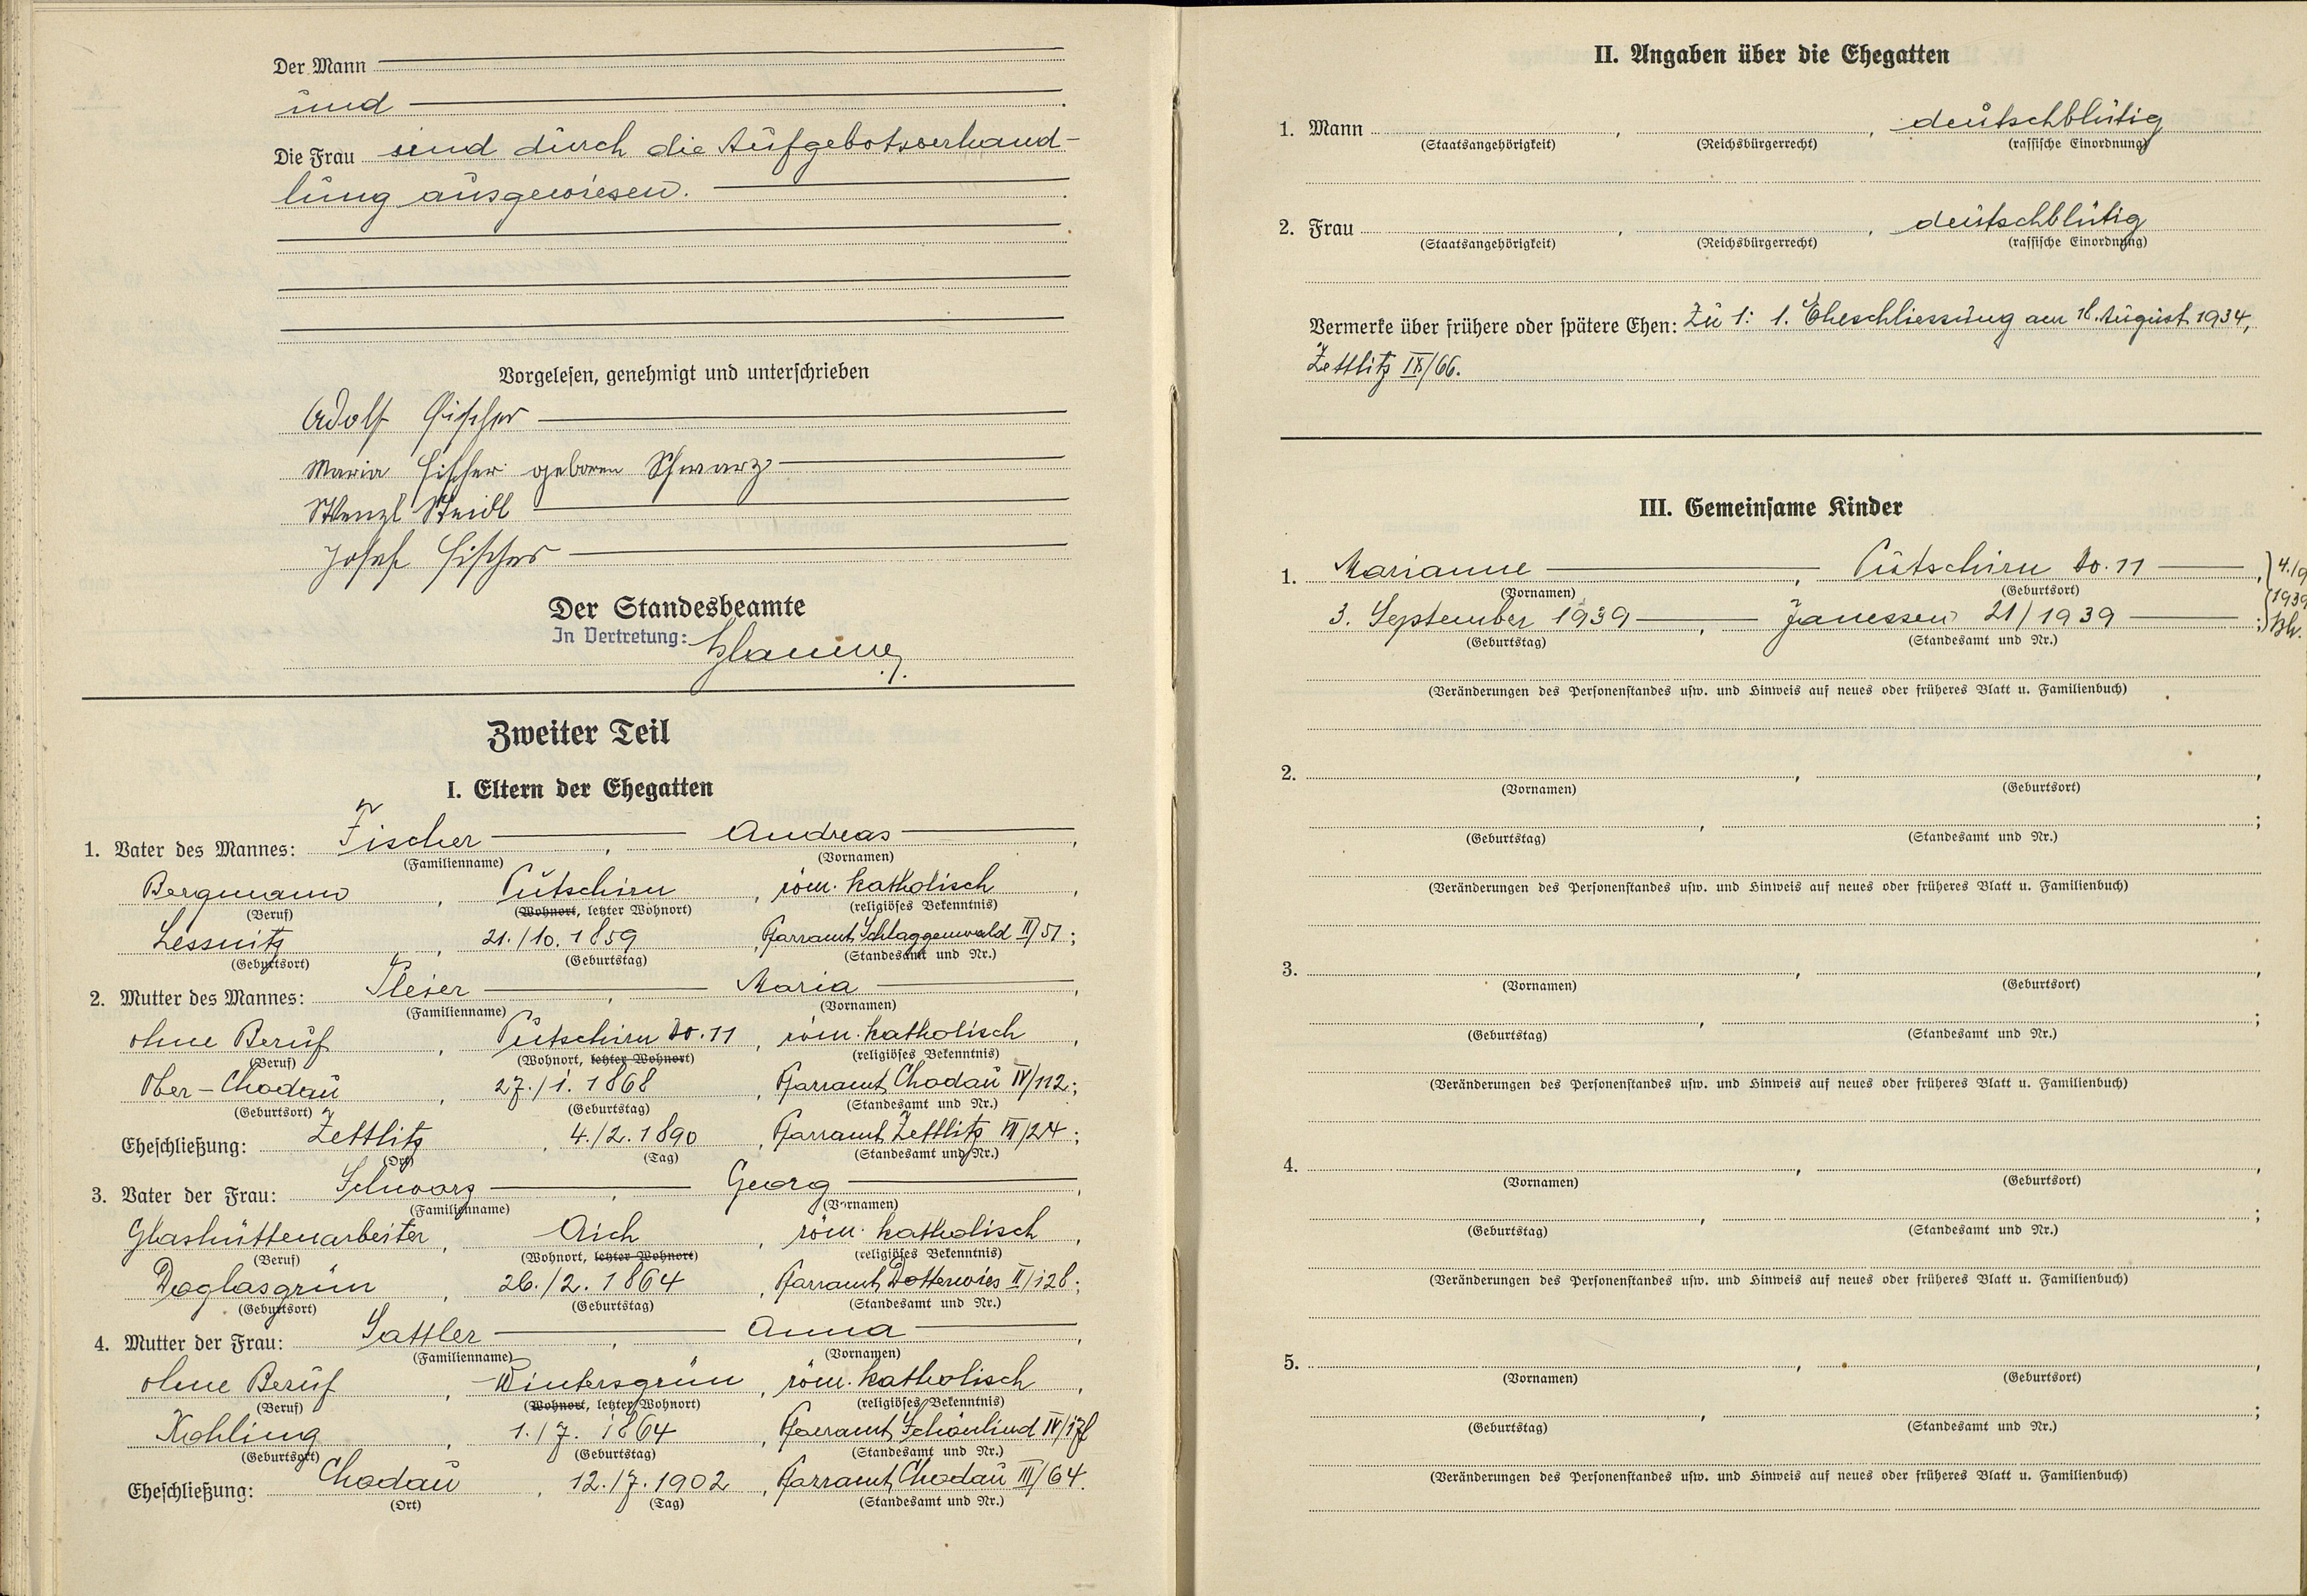 Der Mann
und
Die Frau sind durch die Aufgebotsverhand-
lung ausgewiesen.
Vorgelesen, genehmigt und unterschrieben
Adolf Fischer
Maria Fischer geboren Schwarz
Wenzl Steidl
Josef Fischer
Der Standesbeamte
In Vertretung:
Zweiter Teil
I. Eltern der Ehegatten
1. Vater des Mannes: Fischer, Andreas,
(Familienname) (Vornamen)
Bergmann, Putschirn, röm. katholisch,
(Beruf) (Wohnort, letzter Wohnort) (religiöses Bekenntnis)
Lessnitz, 21./10. 1859, Pfarramt Schlaggenwald II/51;
(Geburtsort) (Geburtstag) (Standesamt und Nr.)
2. Mutter des Mannes: Fleier, Maria,
(Familienname) (Vornamen)
ohne Beruf, Putschirn No. 11, röm. katholisch,
(Beruf) (Wohnort, letzter Wohnort) (religiöses Bekenntnis)
Ober-Chodau, 27./1. 1868, Pfarramt Chodau IV/112;
(Geburtsort) (Geburtstag) (Standesamt und Nr.)
Eheschließung: Zettlitz, 4./2. 1890, Pfarramt Zettlitz VI/24;
(Ort) (Tag) (Standesamt und Nr.)
3. Vater der Frau: Schwarz, Georg,
(Familienname) (Vornamen)
Glashüttenarbeiter, Aich, röm. katholisch,
(Beruf) (Wohnort, letzter Wohnort) (religiöses Bekenntnis)
Doglasgrün, 26./2. 1864, Pfarramt Dotterwies II/128;
(Geburtsort) (Geburtstag) (Standesamt und Nr.)
4. Mutter der Frau: Sattler, Anna,
(Familienname) (Vornamen)
ohne Beruf, Wintersgrün, röm. katholisch,
(Beruf) (Wohnort, letzter Wohnort) (religiöses Bekenntnis)
Kohling, 1./7. 1864, Pfarramt Schönlind
(Geburtsort) (Geburtstag) (Standesamt und Nr.)
Eheschließung: Chodau, 12./7. 1902, Pfarramt Chodau III/64.
(Ort) (Tag) (Standesamt und Nr.)
II. Angaben über die Ehegatten
1. Mann , , deutschblütig
(Staatsangehörigkeit) (Reichsbürgerrecht) (rassische Einordnung)
2. Frau , , deutschblütig
(Staatsangehörigkeit) (Reichsbürgerrecht) (rassische Einordnung)
Vermerke über frühere oder spätere Ehen: Zu 1: 1. Eheschliessung am 18. August 1934,
Zettlitz IX/66.
III. Gemeinsame Kinder
1. Marianne, Putschirn No. 11, 4./9
(Vornamen) (Geburtsort) 1939
3. September 1939, Janessen 21/1939;
(Geburtstag) (Standesamt und Nr.)
(Veränderungen des Personenstandes usw. und Hinweis auf neues oder früheres Blatt u. Familienbuch)
2. , ,
(Vornamen) (Geburtsort)
, ;
(Geburtstag) (Standesamt und Nr.)
(Veränderungen des Personenstandes usw. und Hinweis auf neues oder früheres Blatt u. Familienbuch)
3. , ,
(Vornamen) (Geburtsort)
, ;
(Geburtstag) (Standesamt und Nr.)
(Veränderungen des Personenstandes usw. und Hinweis auf neues oder früheres Blatt u. Familienbuch)
4. , ,
(Vornamen) (Geburtsort)
, ;
(Geburtstag) (Standesamt und Nr.)
(Veränderungen des Personenstandes usw. und Hinweis auf neues oder früheres Blatt u. Familienbuch)
5. , ,
(Vornamen) (Geburtsort)
, ;
(Geburtstag) (Standesamt und Nr.)
(Veränderungen des Personenstandes usw. und Hinweis auf neues oder früheres Blatt u. Familienbuch)